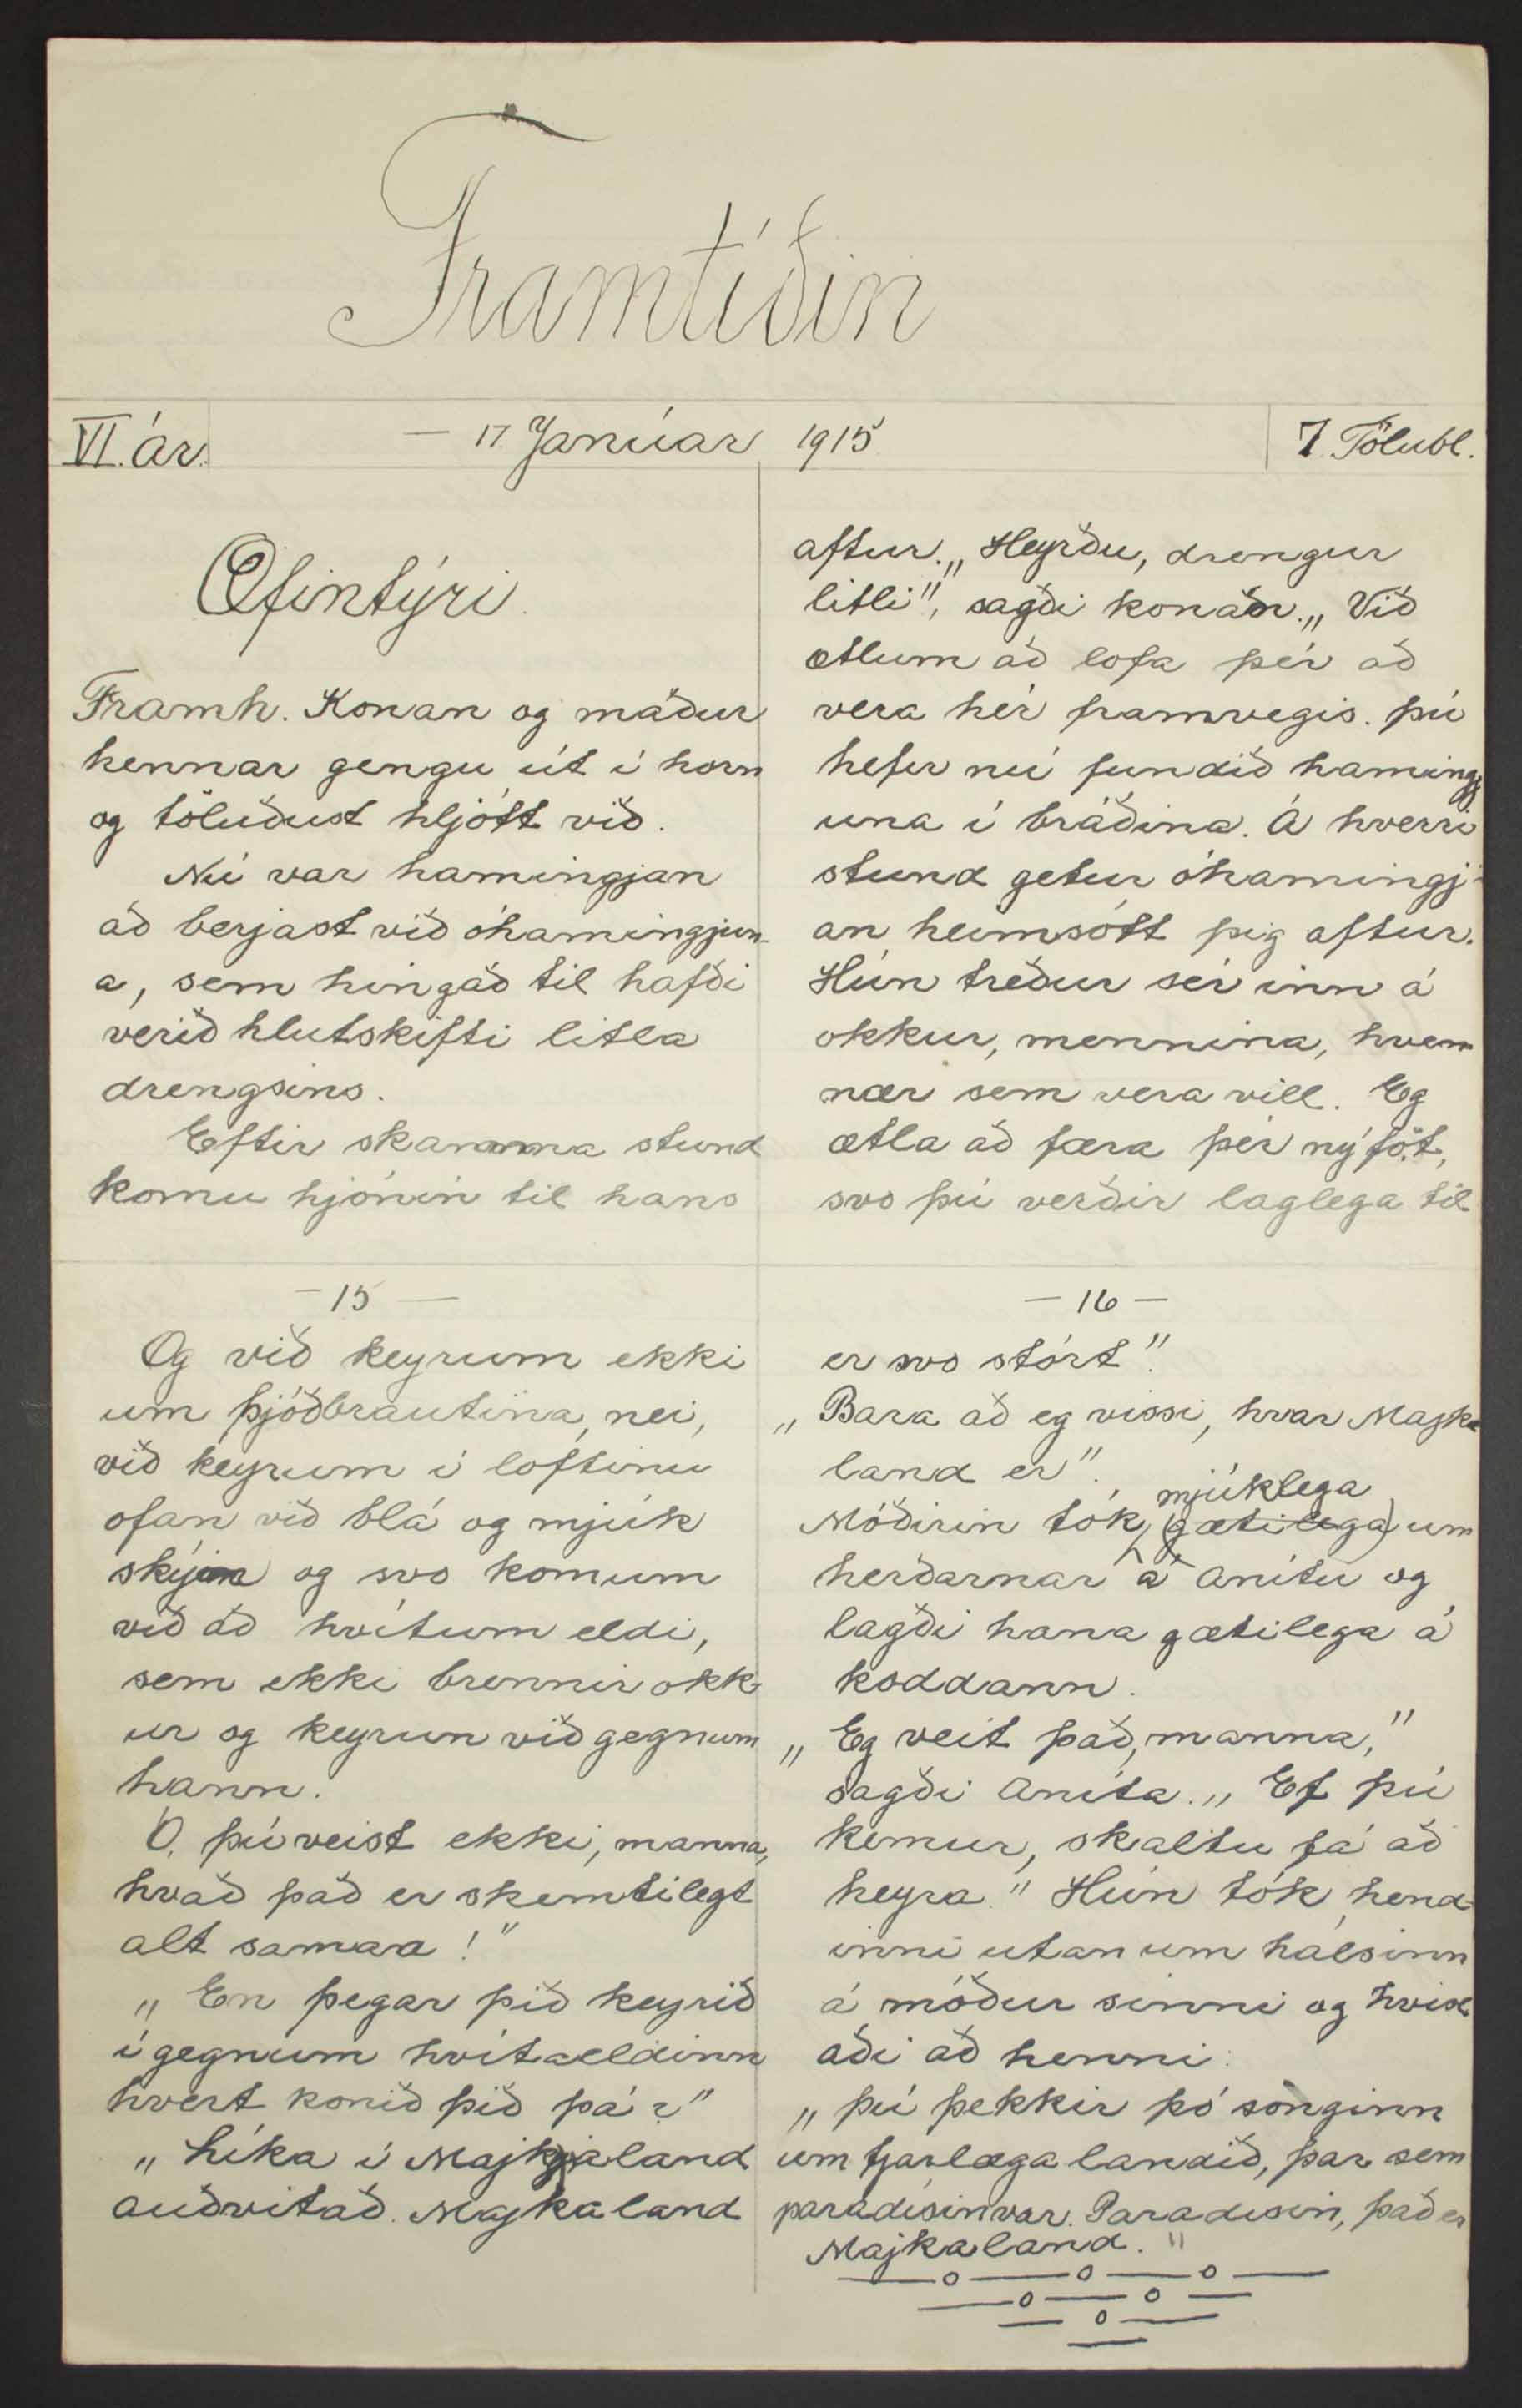 Framtíðin
VI. ár. — 17. Janúar 1915 7. Tölubl.
Æfintýri.
Framh. Konan og máður
hennar gengu út í horn
og töluðust hljótt við.
Nú var hamingjan
að berjast við óhamingjun-
a, sem hingað til hafði
verið hlutskifti litla
drengsins.
Eftir skamma stund
komu hjónin til hans
aftur. „Heyrðu, drengur
litli", sagði konan. „Við
ætlum að lofa þér að
vera hér framvegis. þú
hefur nú fundið hamingj
una í bráðina. Á hverri
stund getur óhamingj-
an heimsótt þig aftur.
Hún treður sér inn á
okkur, mennina, hven
nær sem vera vill. Eg
ætla að færa þér ný föt,
svo þú verðir laglega til
— 15 —
Og við keyrum ekki
um þjóðbrautina, nei,
við keyrum í loftinu
ofan við blá og mjúk
skýin og svo komum
við að hvítum eldi,
sem ekki brennir okk-
ur og keyrun við gegnum
hann.
Ó, þú veist ekki, manna,
hvað það er skemtilegt
alt saman!"
„En þegar þið keyrið
í gegnum hvítaeldinn
hvert konið þið þá?"
„Líka í Majkaland
auðvitað. Majkaland
— 16 —
er svo stórt".
„Bara að eg vissi, hvar Majka
land er".
mjúklega
Móðirin tók (gætilega) um
herðarnar á Anítu og
lagði hana gætilega á
koddann.
„Eg veit það, manna,"
sagði Aníta. „Ef þú
kemur, skaltu fá að
heyra." Hún tók hend-
inni utan um hálsinn
á móður sinni og hvísl
aði að henni:
„þú þekkir þó sönginn
um fjarlæga landið, þar sem
paradísin var. Paradísin, það er
Majkaland."